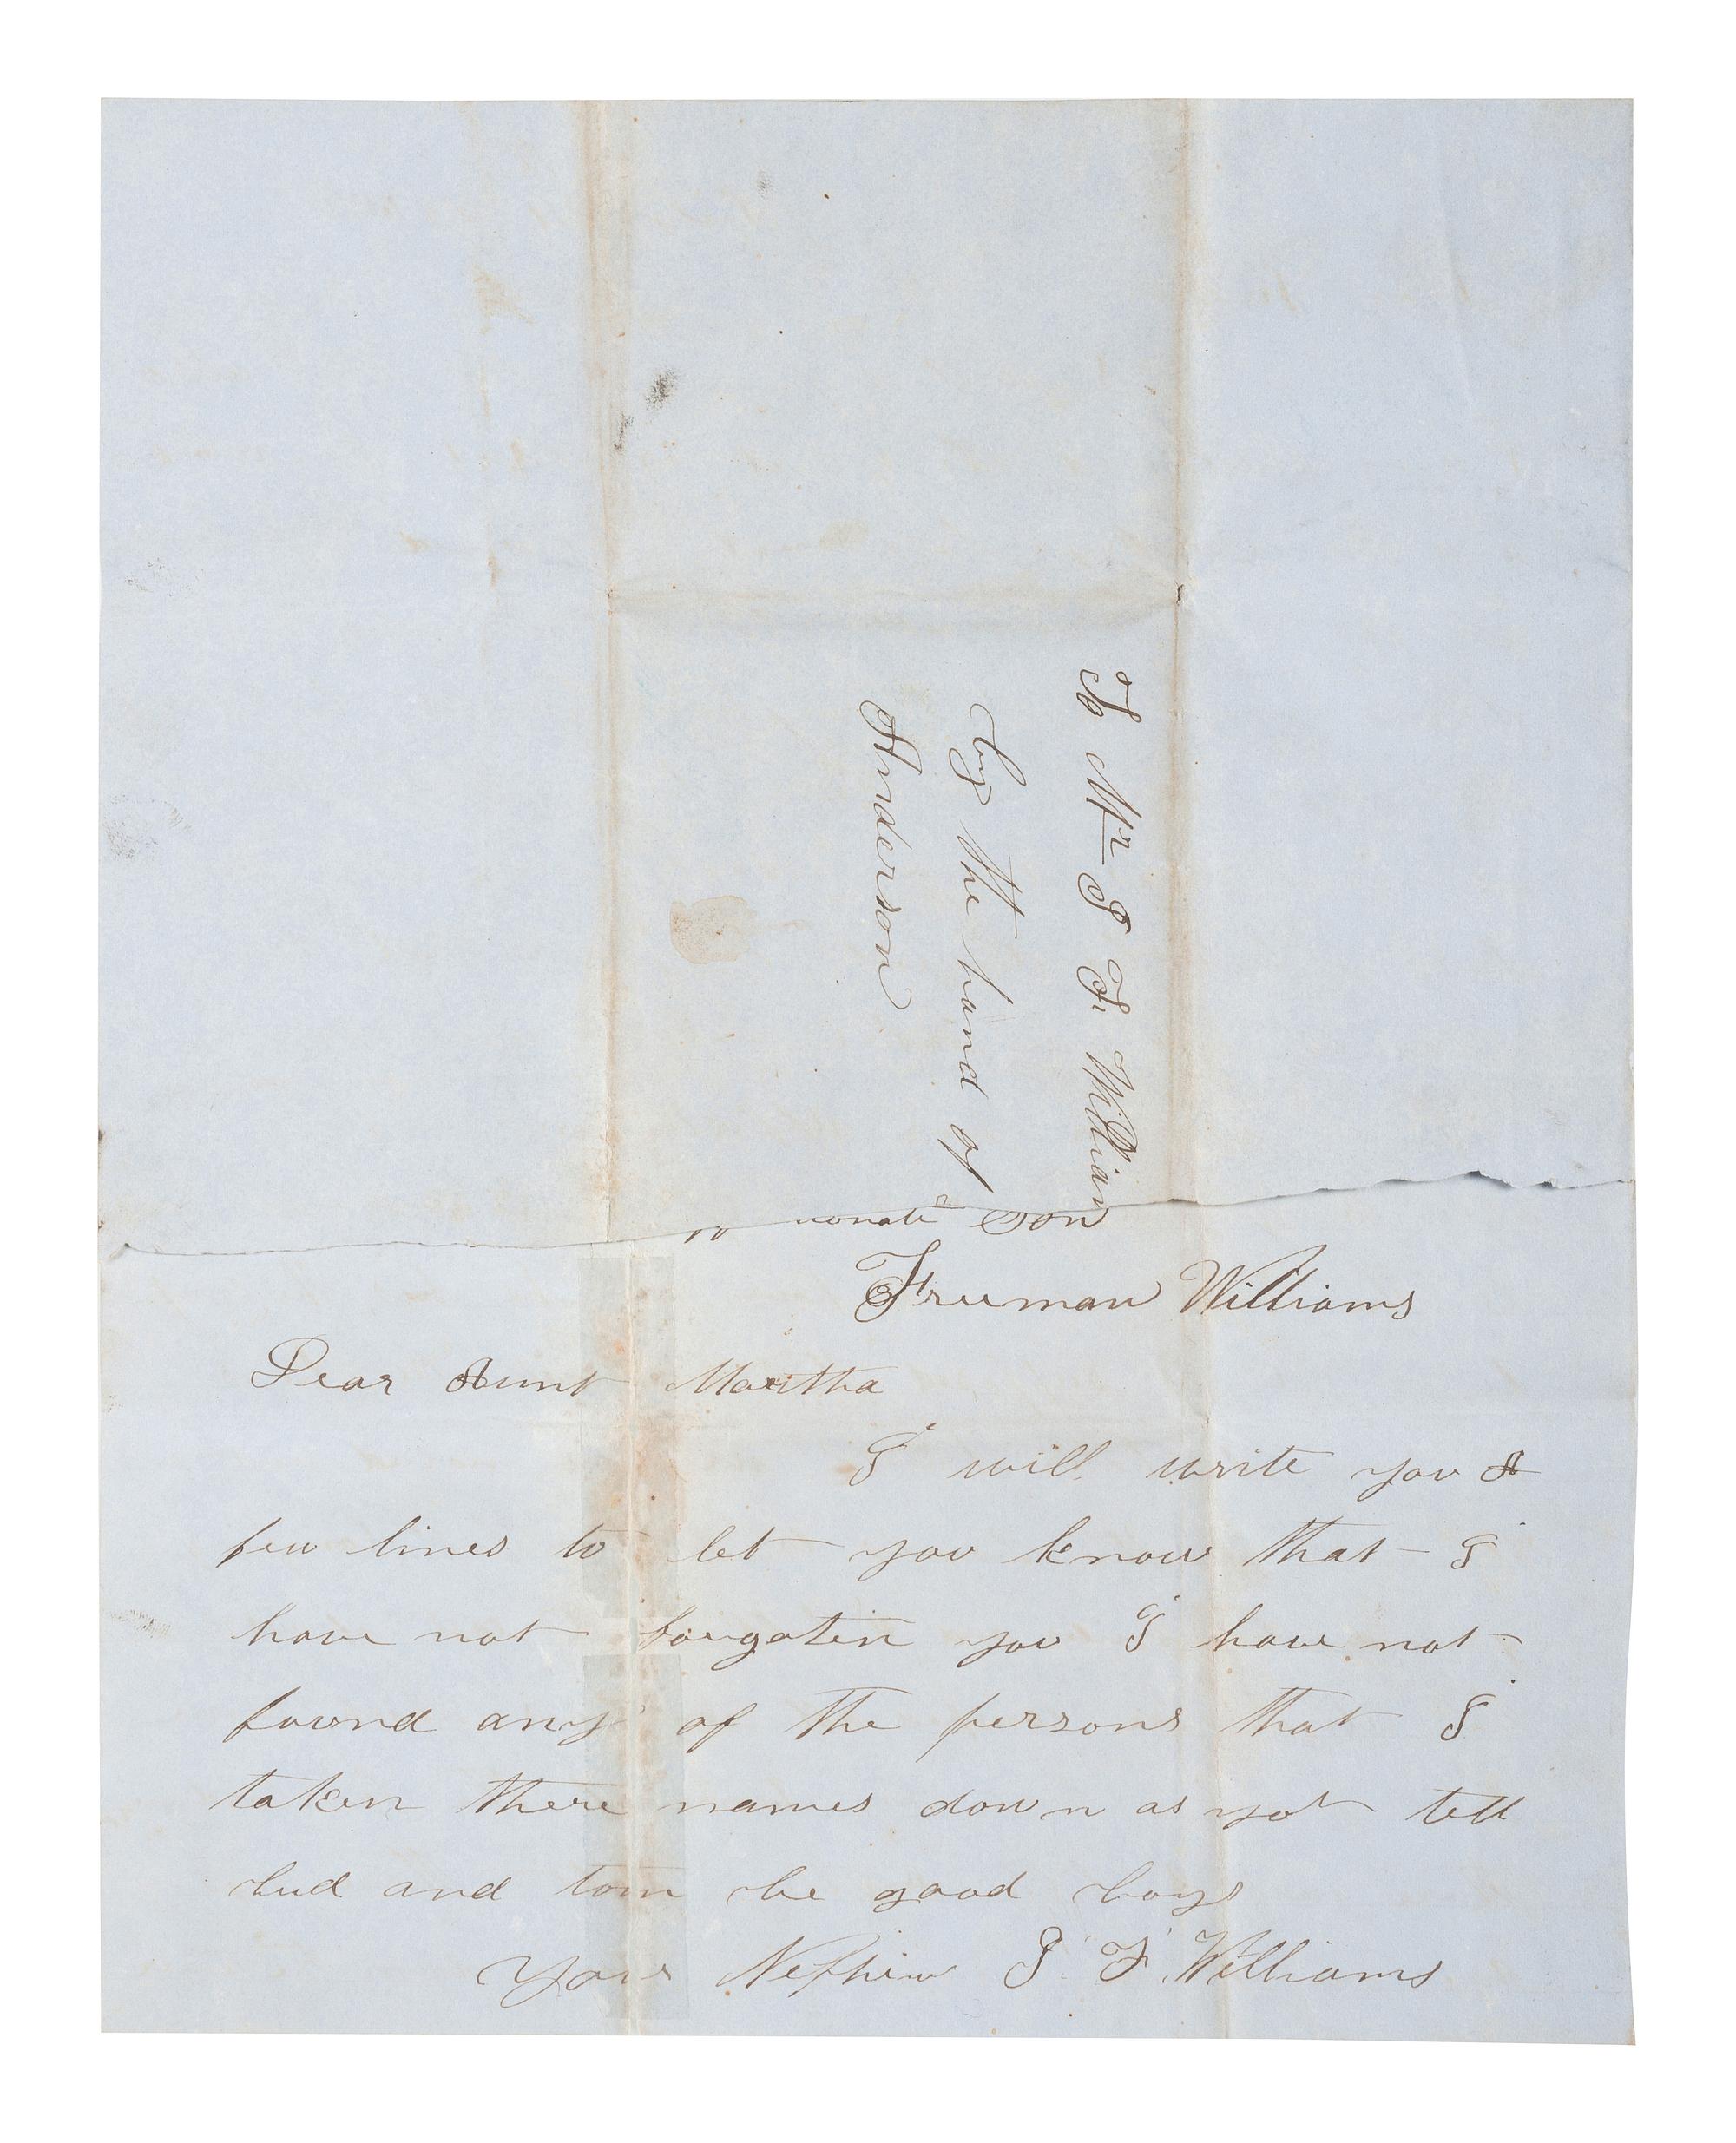 To Mr J F William
by the hand of
Anderson
Son
Freeman Williams
Dear Aunt Martha
I will write you A
few lines to let you know that I
have not forgoten you I have not
found any of the persons that I
taken there names down as yot tell
bud and tom be good boys
Your Nephew J F Williams